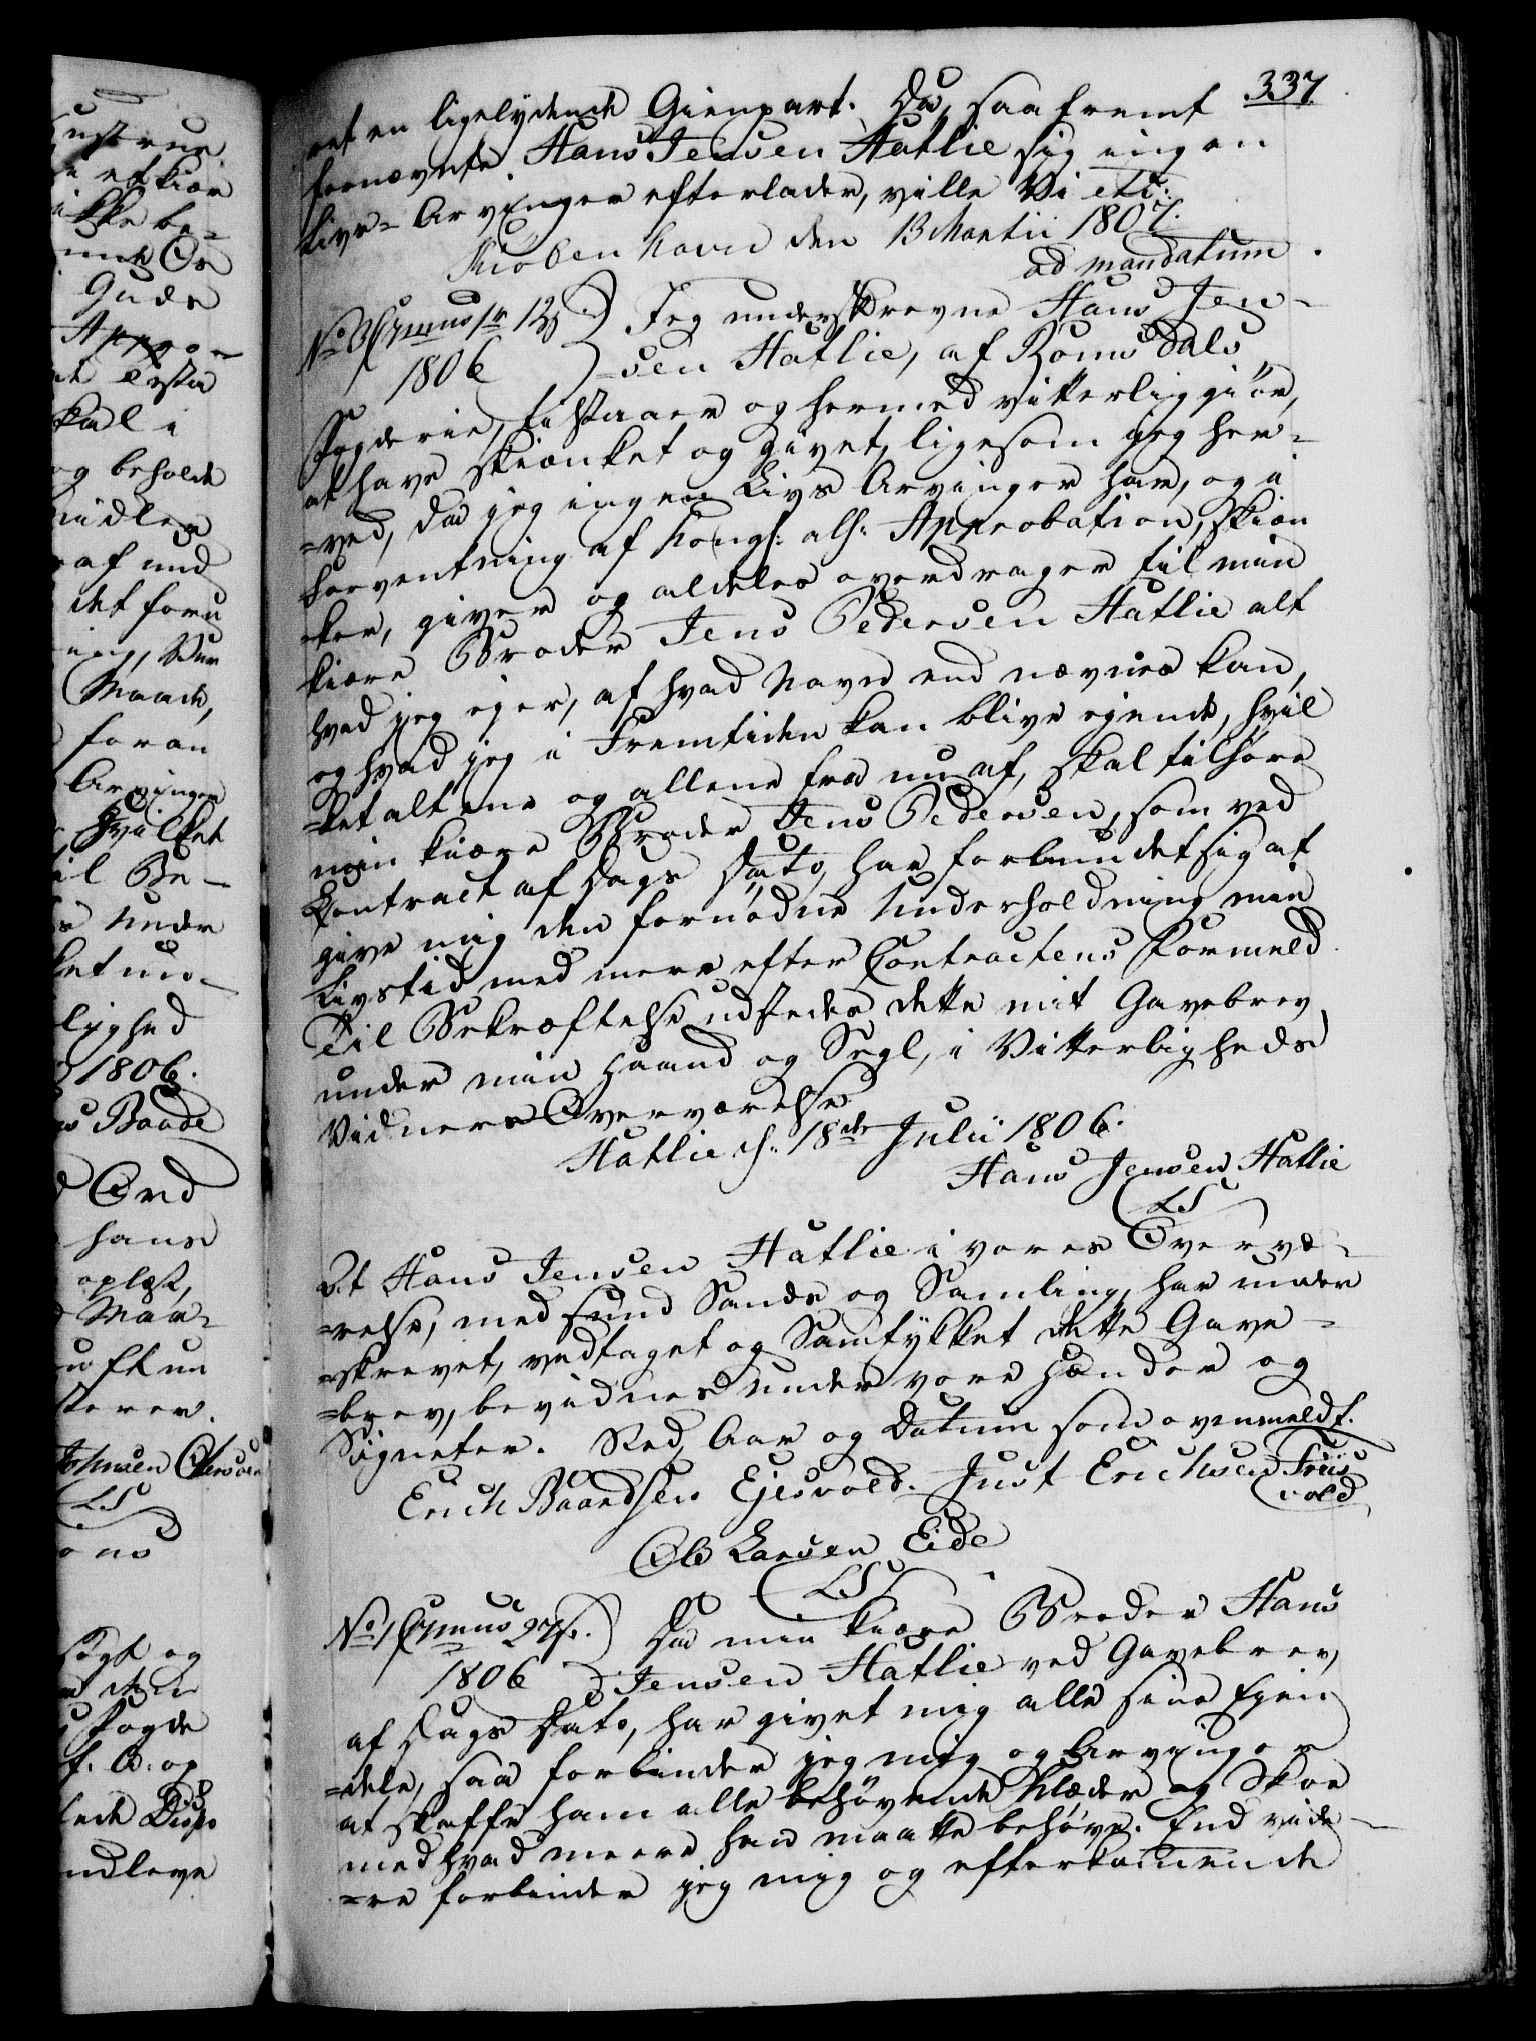 337
et en ligelydende Gienpart. Da, saafremt
fornævnte Hans Jensen Hatlie sig ingen
Livs-Arvinger efterlader, ville Vi etc:
Kiøbenhavn den 13 Martii 1807.
ad mandatum.
1806 Jeg underskrevne Hans Jen-
sen Hatlie, af Romsdals
Fogderie, tilstaaer og hermed vitterliggiør,
at have skiænket og givet, ligesom jeg her-
=ved, da jeg ingen Livs Arvinger har, og i
Forventning af Kongl: alh: Approbation, skien
ker, giver og aldeles overdrager til min
kiære Broder Jens Pedersen Hatlie alt
hvad jeg ejer, af hvad Navn end nævnes kan,
og hvad jeg i Fremtiden kan blive ejende, hvil
=ket alt ene og allene fra nu af, skal tilhøre
min kiære Broder Jens Pedersen, som ved
Contract af Dags Dato, har forbundet sig at
give mig den fornødne Underholdning min
Livstid med mere efter Contractens Formeld.
Til Bekræftelse udstedes dette mit Gavebrev,
under min Haand og Segl, i Vitterligheds
Vidners Overværelse
Hatlie d. 18de Julii 1806.
Hans Jensen Hatlie
LS
At Hans Jensen Hatlie i vores Overvæ-
=relse, med sund Sands og Samling, har under
=skrevet, vedtaget og Samtykket dette Gave-
=brev, bevidnes under vore Hænder og
Signeter. Sted, Aar og Datum som ovenmeldt.
Erich Baardsen Ejesvold. Just Erichsen Friis
vold
Ole Larsen Eide
LS
1806 Da min kiære Broder Hans
Jensen Hatlie ved Gavebrev,
af Dags Dato, har givet mig alle sine Ejen
=dele, saa forbinder jeg mig og Arvinger
at skaffe ham alle behøvende Klæder og Skoe
med hvad meere han maatte behøve. End vide-
=re forbinder jeg mig og efterkommende